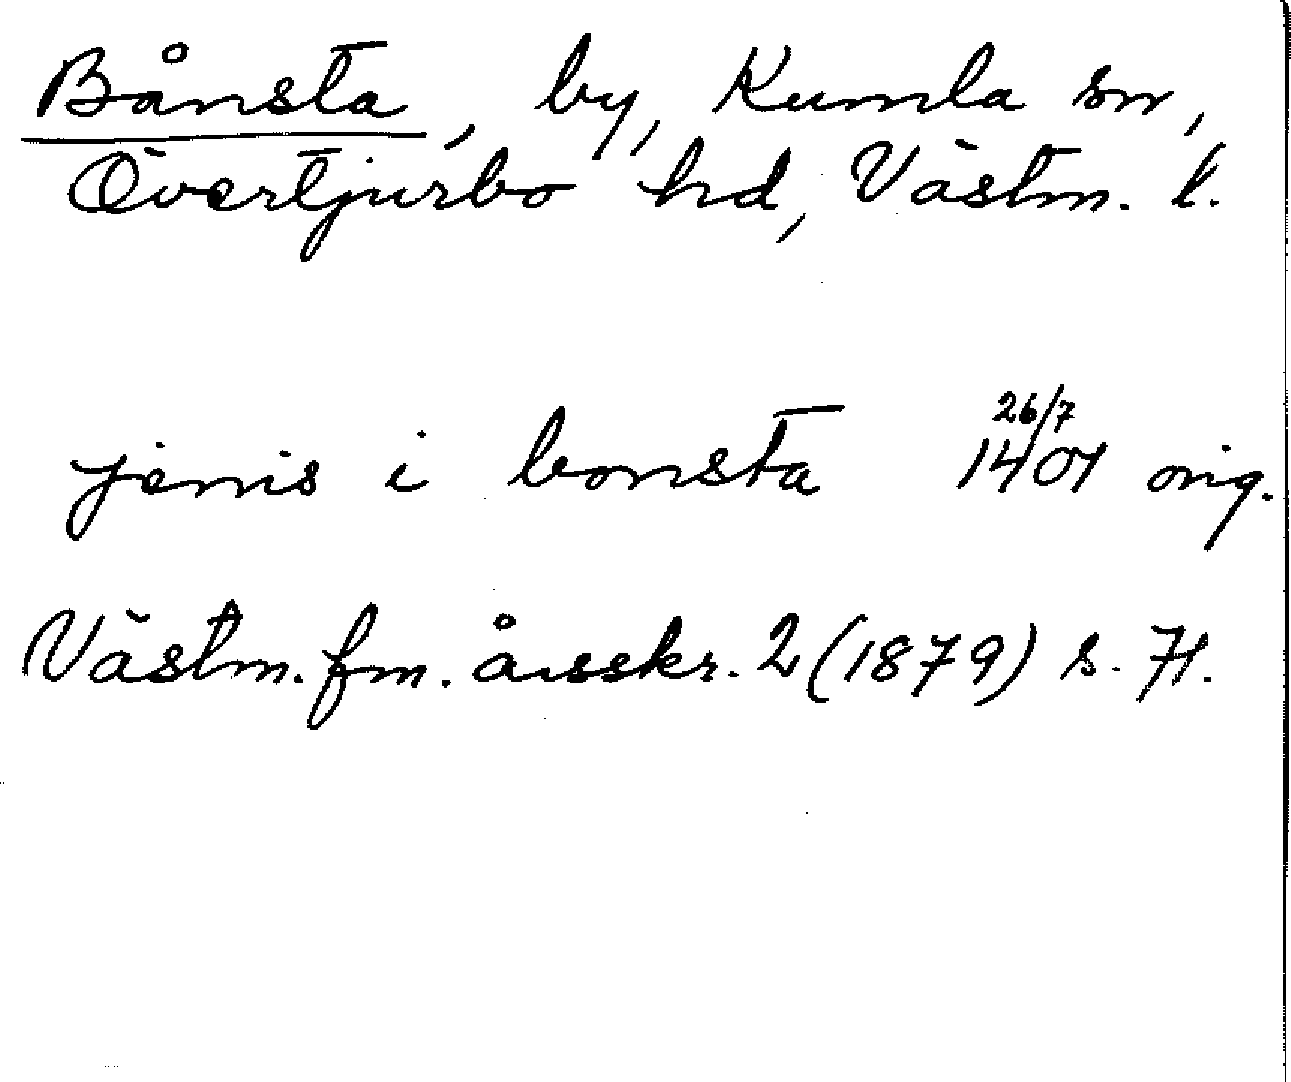 Bånsta, by, Kumla sn,
Övertjurbo hd, Västm. l.
jenis i bonsta 26/7 1401 orig.
Västm. fm. årsskr. 2 (1879) s. 71.